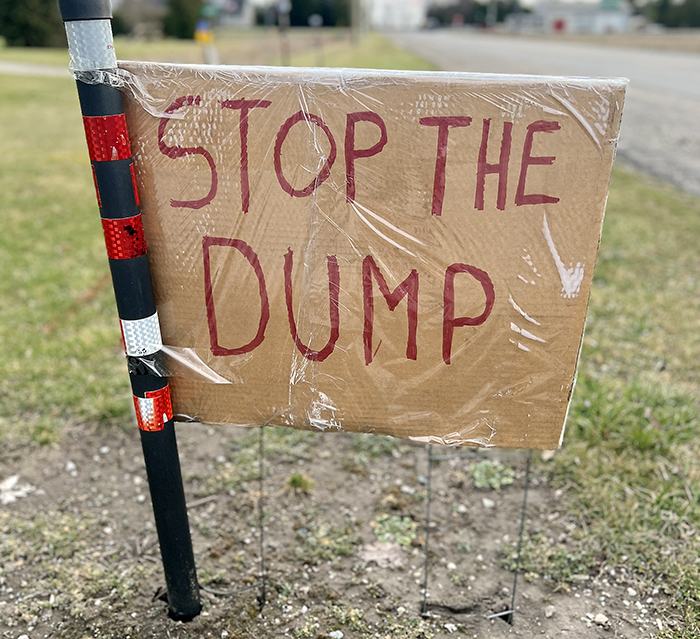 STOP THE
DUMP